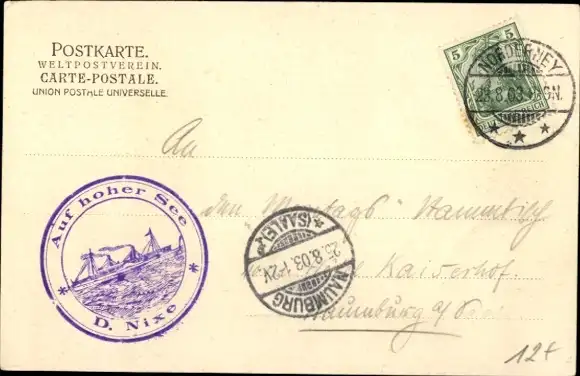 POSTKARTE.
WELTPOSTVEREIN.
CARTE-POSTALE.
UNION POSTALE UNIVERSELLE.
5 5
NORDERNEY
8.03
REICH
An
den "Montags" Stammtisch
Kaiserhof.
Naumburg a/
NAUMBURG
8.03.1-2V.
(SAALE)
Auf hoher See
D. Nixe
12+